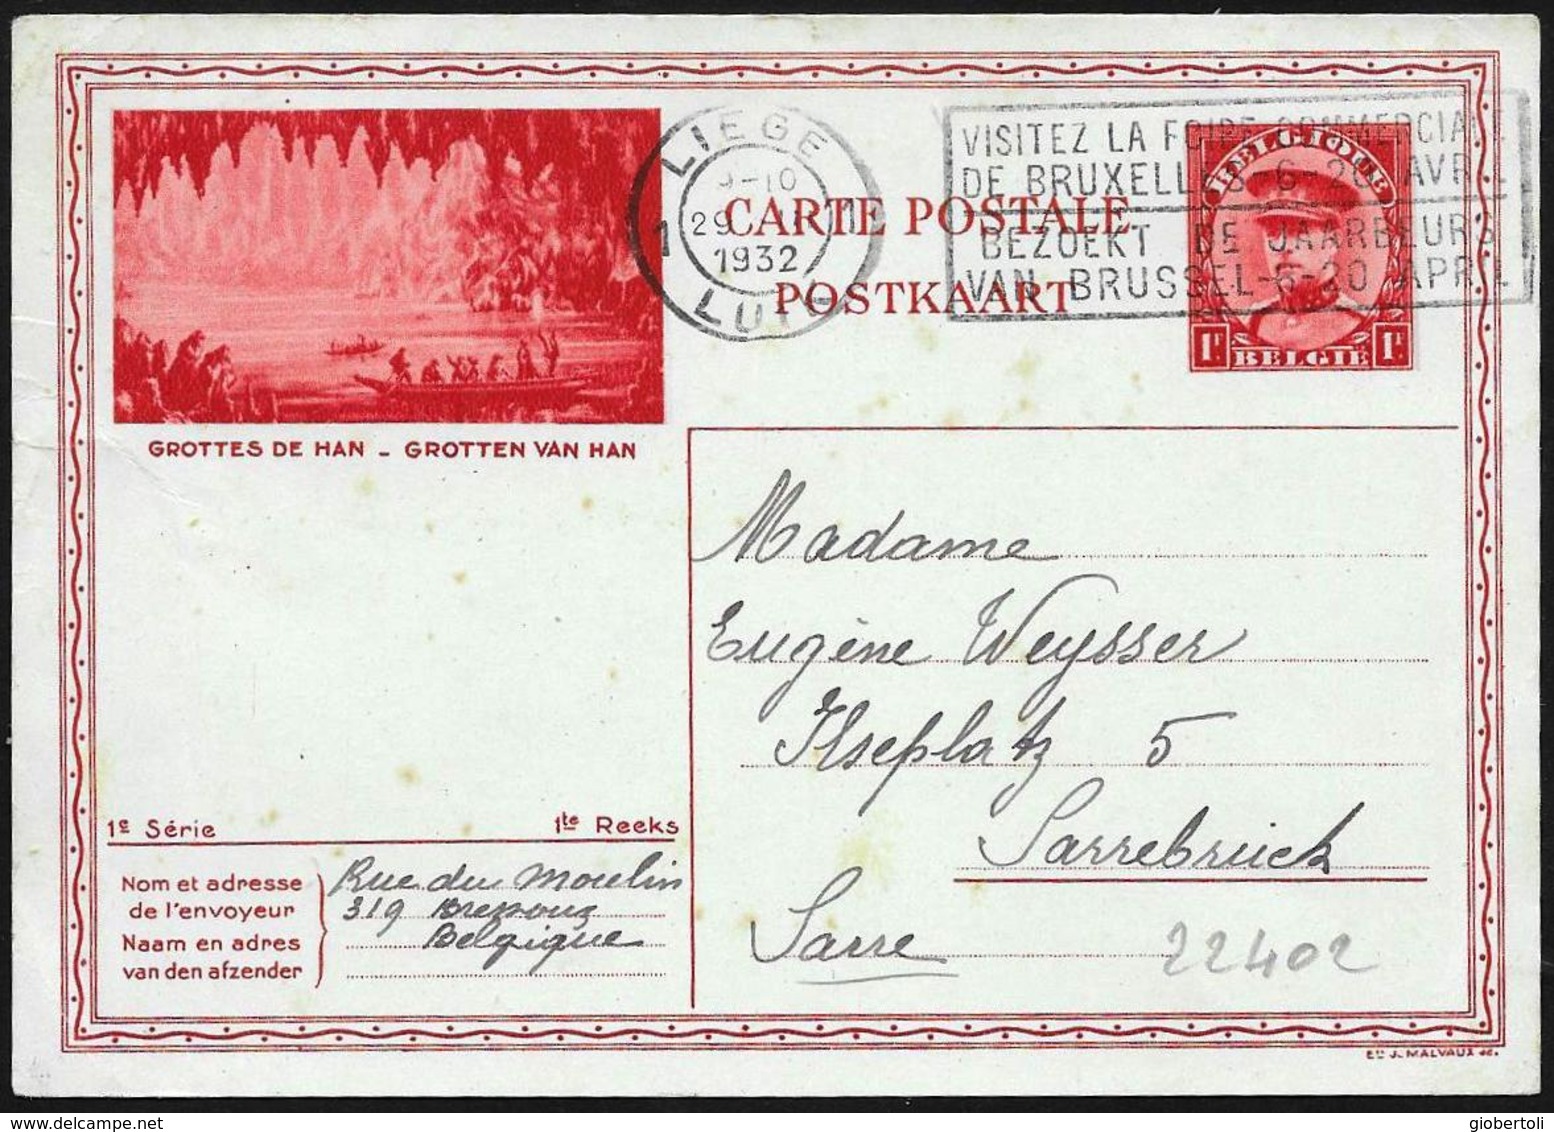 LIEGE
9-10
29
1932
1 1
LUIK
VISITEZ LA FOIRE COMMERCIALE
DE BRUXELLES-6-20 AVRIL
BEZOEKT DE JAARBEURS
VAN BRUSSEL-6-20 APRIL
CARTE POSTALE
POSTKAART
BELGIQUE
1F BELGIE 1F
GROTTES DE HAN - GROTTEN VAN HAN
Madame
Eugène Weysser
Ilseplatz 5
Sarrebruck
Sarre
22402
1e Série
1te Reeks
Nom et adresse
de l'envoyeur
Naam en adres
van den afzender
Rue du Moulin
319 Bressoux
Belgique
J. MALVAUX
delcampe.net
giobertoli